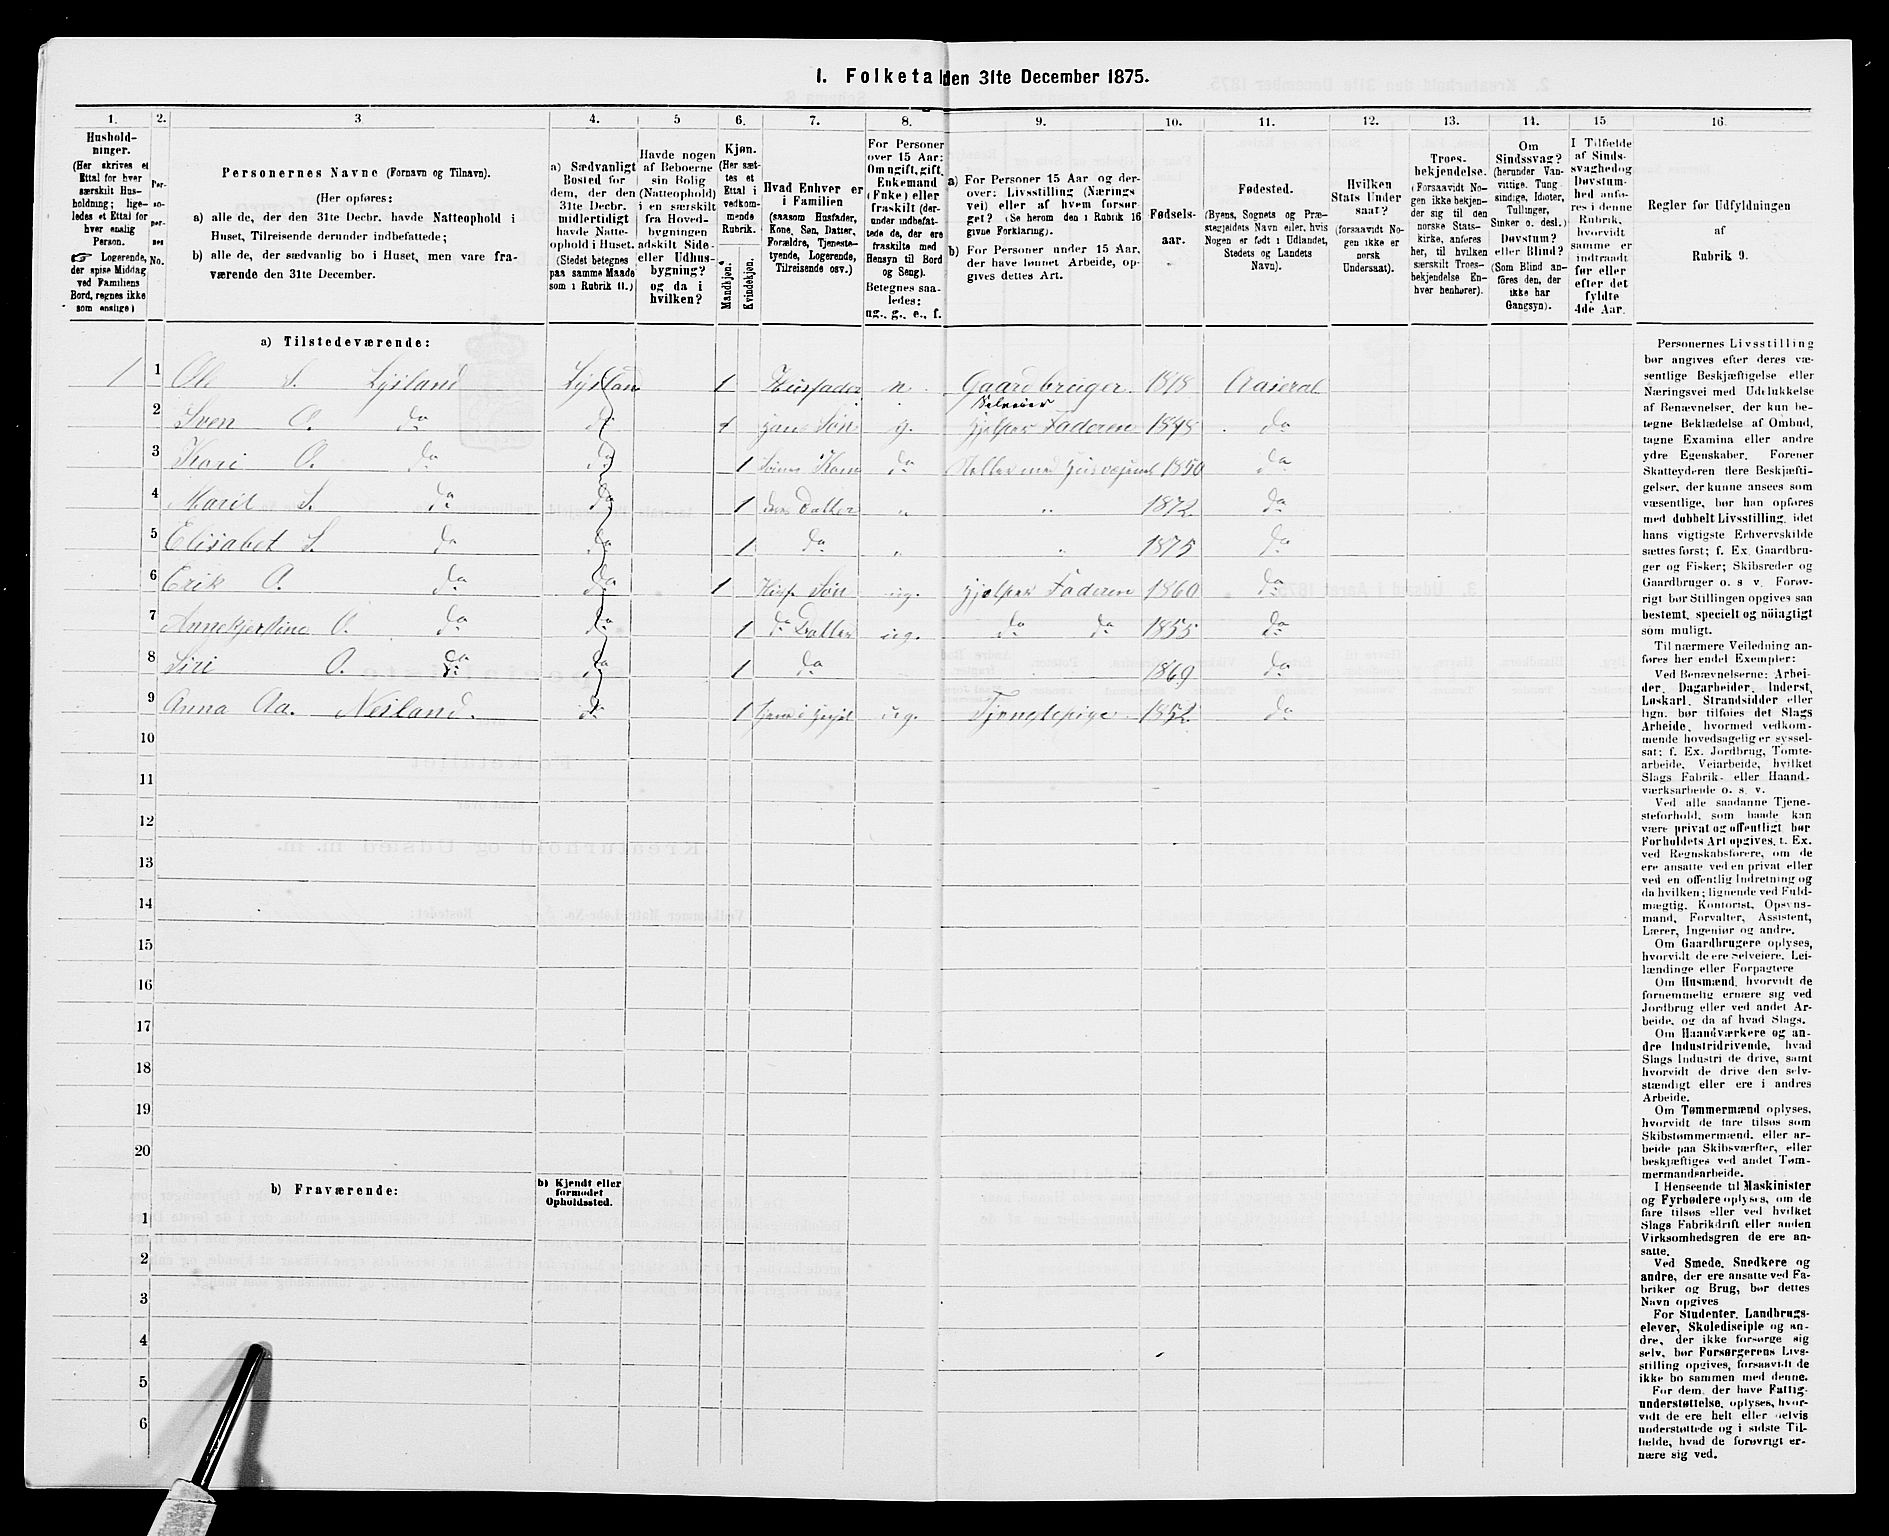 1. Folketal den 31te December 1875.
1. 2. 3 4. 5 6. 7. 8. 9. 10. 11. 12. 13. 14. 15 16.
Hushold-
ninger.
(Her skrives et
Ettal for hver
særskilt Hus-
holdning; lige-
ledes et Ettal for
hver enslig
Person.
☞ Logerende,
der spise Middag
ved Familiens
Bord, regnes ikke
som enslige)
Per-
so-
per-
nes
No.
Personernes Navne (Fornavn og Tilnavn).
(Her opføres:
a) alle de, der den 31te Decbr. havde Natteophold i
Huset, Tilreisende derunder indbefattede;
b) alle de, der sædvanlig bo i Huset, men vare fra-
værende den 31te December.
a) Sædvanligt
Bosted for
dem, der den
31te Decbr.
midlertidigt
havde Natte-
ophold i Huset.
(Stedet betegnes
paa samme Maade
som i Rubrik 11.)
Havde nogen
af Beboerne
sin Bolig
(Natteophold)
i en særskilt
fra Hoved-
bygningen
adskilt Side-
eller Udhus-
bygning?
og da i
hvilken?
Kjøn.
(Her sæt-
tes et
Ettal i
vedkom-
mende
Rubrik.
Mandkjøn.
Kvindekjøn.
Hvad Enhver er
i Familien
(saasom Husfader,
Kone, Søn, Datter,
Forældre, Tjeneste-
tyende, Logerende,
Tilreisende osv.)
For Personer
over 15 Aar:
Om ugift, gift,
Enkemand
(Enke) eller
fraskilt (der-
under indbefat-
tede de, der ere
fraskilte med
Hensyn til Bord
og Seng).
Betegnes saa-
ledes:
ug., g., e., f.
a) For Personer 15 Aar og der-
over: Livsstilling (Nærings
vei) eller af hvem forsør-
get? (Se herom den i Rubrik 16
givne Forklaring).
b) For Personer under 15 Aar,
der have lønnet Arbeide, op-
gives dettes Art.
Fødsels-
aar.
Fødested.
(Byens, Sognets og Præ-
stegjeldets Navn eller, hvis
Nogen er født i Udlandet,
Stedets og Landets
Navn).
Hvilken
Stats Under
saat?
(forsaavidt No-
gen ikke er
norsk
Undersaat).
Troes-
bekjendelse.
(Forsaavidt No-
gen ikke bekjen-
der sig til den
norske Stats-
kirke, anføres
her, til hvilken
særskilt Troes-
bekjendelse En-
hver henhører).
Om
Sindssvag?
(herunder Van-
vittige, Tung
sindige, Idioter,
Tullinger,
Sinker o. desl.)
Døvstum?
eller Blind?
(Som Blind an-
føres den, der
ikke har
Gangsyn).
I Tilfælde
af Sinds-
svaghedog
Døvstum-
hed anfø-
res i denne
Rubrik,
hvorvidt
samme er
indtraadt
før eller
efter det
fyldte
4de Aar.
Regler for Udfyldningen
af
Rubrik 9.
a) Tilstedeværende:
1 1 Ole S. Lysland Lyslan 1 Husfader Gaardbruger 1818 Aaseral
Selveier
2 Sven O. do do 1 hans Søn g. hjelper Faderen 1848 do
3 Kari O. do do 1 Søns Kone do Steller med Husvæsenet 1850 do
4 Marit S. do do 1 Datter „ „ 1872 do
5 Elisabet S. do do 1 do „ „ 1875 do
6 Erik O. do do 1 Husf. Søn ug. hjelper Faderen 1860 do
7 Annekjerstine O. do do 1 do Datter ug. do do 1855 do
8 Siri O. do do 1 do 1869 do
9 Anna Aa. Neiland. do 1 ug. Tjenestepige 1852 do
10
11
12
13
14
15
16
17
18
19
20
b) Fraværende:
b) Kjendt eller
formodet
Opholdssted.
1
2
3
4
5
6
Personernes Livsstilling
bør angives efter deres væ-
sentlige Beskjæftigelse eller
Næringsvei med Udelukkelse
af Benævnelser, der kun be-
tegne Beklædelse af Ombud,
tagne Examina eller andre
ydre Egenskaber. Forener
Skatteyderen flere Beskjæfti-
gelser, der kunne ansees som
væsentlige, bør han opføres
med dobbelt Livsstilling, idet
hans vigtigste Erhvervskilde
sættes først; f. Ex. Gaardbru-
ger og Fisker; Skibsreder og
Gaardbruger o. s v. Forøv-
rigt bør Stillingen opgives saa
bestemt, specielt og nöiagtigt
som muligt.
Til nærmere Veiledning an-
føres her endel Exempler:
Ved Benævnelserne: Arbei-
der, Dagarbeider, Inderst,
Løskarl, Strandsidder eller
lign. bør tilføies det Slags
Arbeide, hvormed vedkom-
mende hovedsagelig er syssel-
sat; f. Ex. Jordbrug, Tomte-
arbeide, Veiarbeide, hvilket
Slags Fabrik- eller Haand-
værksarbeide o. s. v.
Ved alle saadanne Tjene-
steforhold, som baade kan
være privat og offentligt bør
Forholdets Art opgives, t. Ex.
ved Regnskabsførere, om de
ere ansatte ved en privat eller
ved en offentlig Indretning og
da hvilken; lignende ved Fuld-
mægtig, Kontorist, Opsyns-
mand, Forvalter, Assistent,
Lærer, Ingeniør og andre.
Om Gaardbrugere oplyses,
hvorvidt de ere Selveiere, Lei-
lændinge eller Forpagtere
Om Husmænd, hvorvidt de
fornemmelig ernære sig ved
Jordbrug eller ved andet Ar-
beide, og da af hvad Slags.
Om Haandværkere og an-
dre Industridrivende, hvad
Slags Industri de drive, samt
hvorvidt de drive den selv-
stændigt eller ere i andres
Arbeide.
Om Tømmermænd oplyses,
hvorvidt de fare tilsøs som
Skibstømmermænd, eller ar-
beide paa Skibsværfter, eller
beskjæftiges ved andet Tøm-
mermandsarbeide.
I Henseende til Maskinister
og Fyrbødere oplyses, om de
fare tilsøs eller ved hvilket
Slags Fabrikdrift eller anden
Virksomhedsgren de ere an-
satte.
Ved Smede, Snedkere og
andre, der ere ansatte ved Fa-
briker og Brug, bør dettes
Navn opgives
For Studenter, Landbrugs-
elever, Skoledisciple og an-
dre, der ikke forsørge sig
selv, bør Forsørgerens Livs-
stilling opgives, forsaavidt de
ikke bo sammen med denne.
For dem, der have Fattig-
understøttelse, oplyses, hvor-
vidt de ere helt eller delvis
understøttede og i sidste Til-
fælde, hvad de forøvrigt er-
nære sig ved.